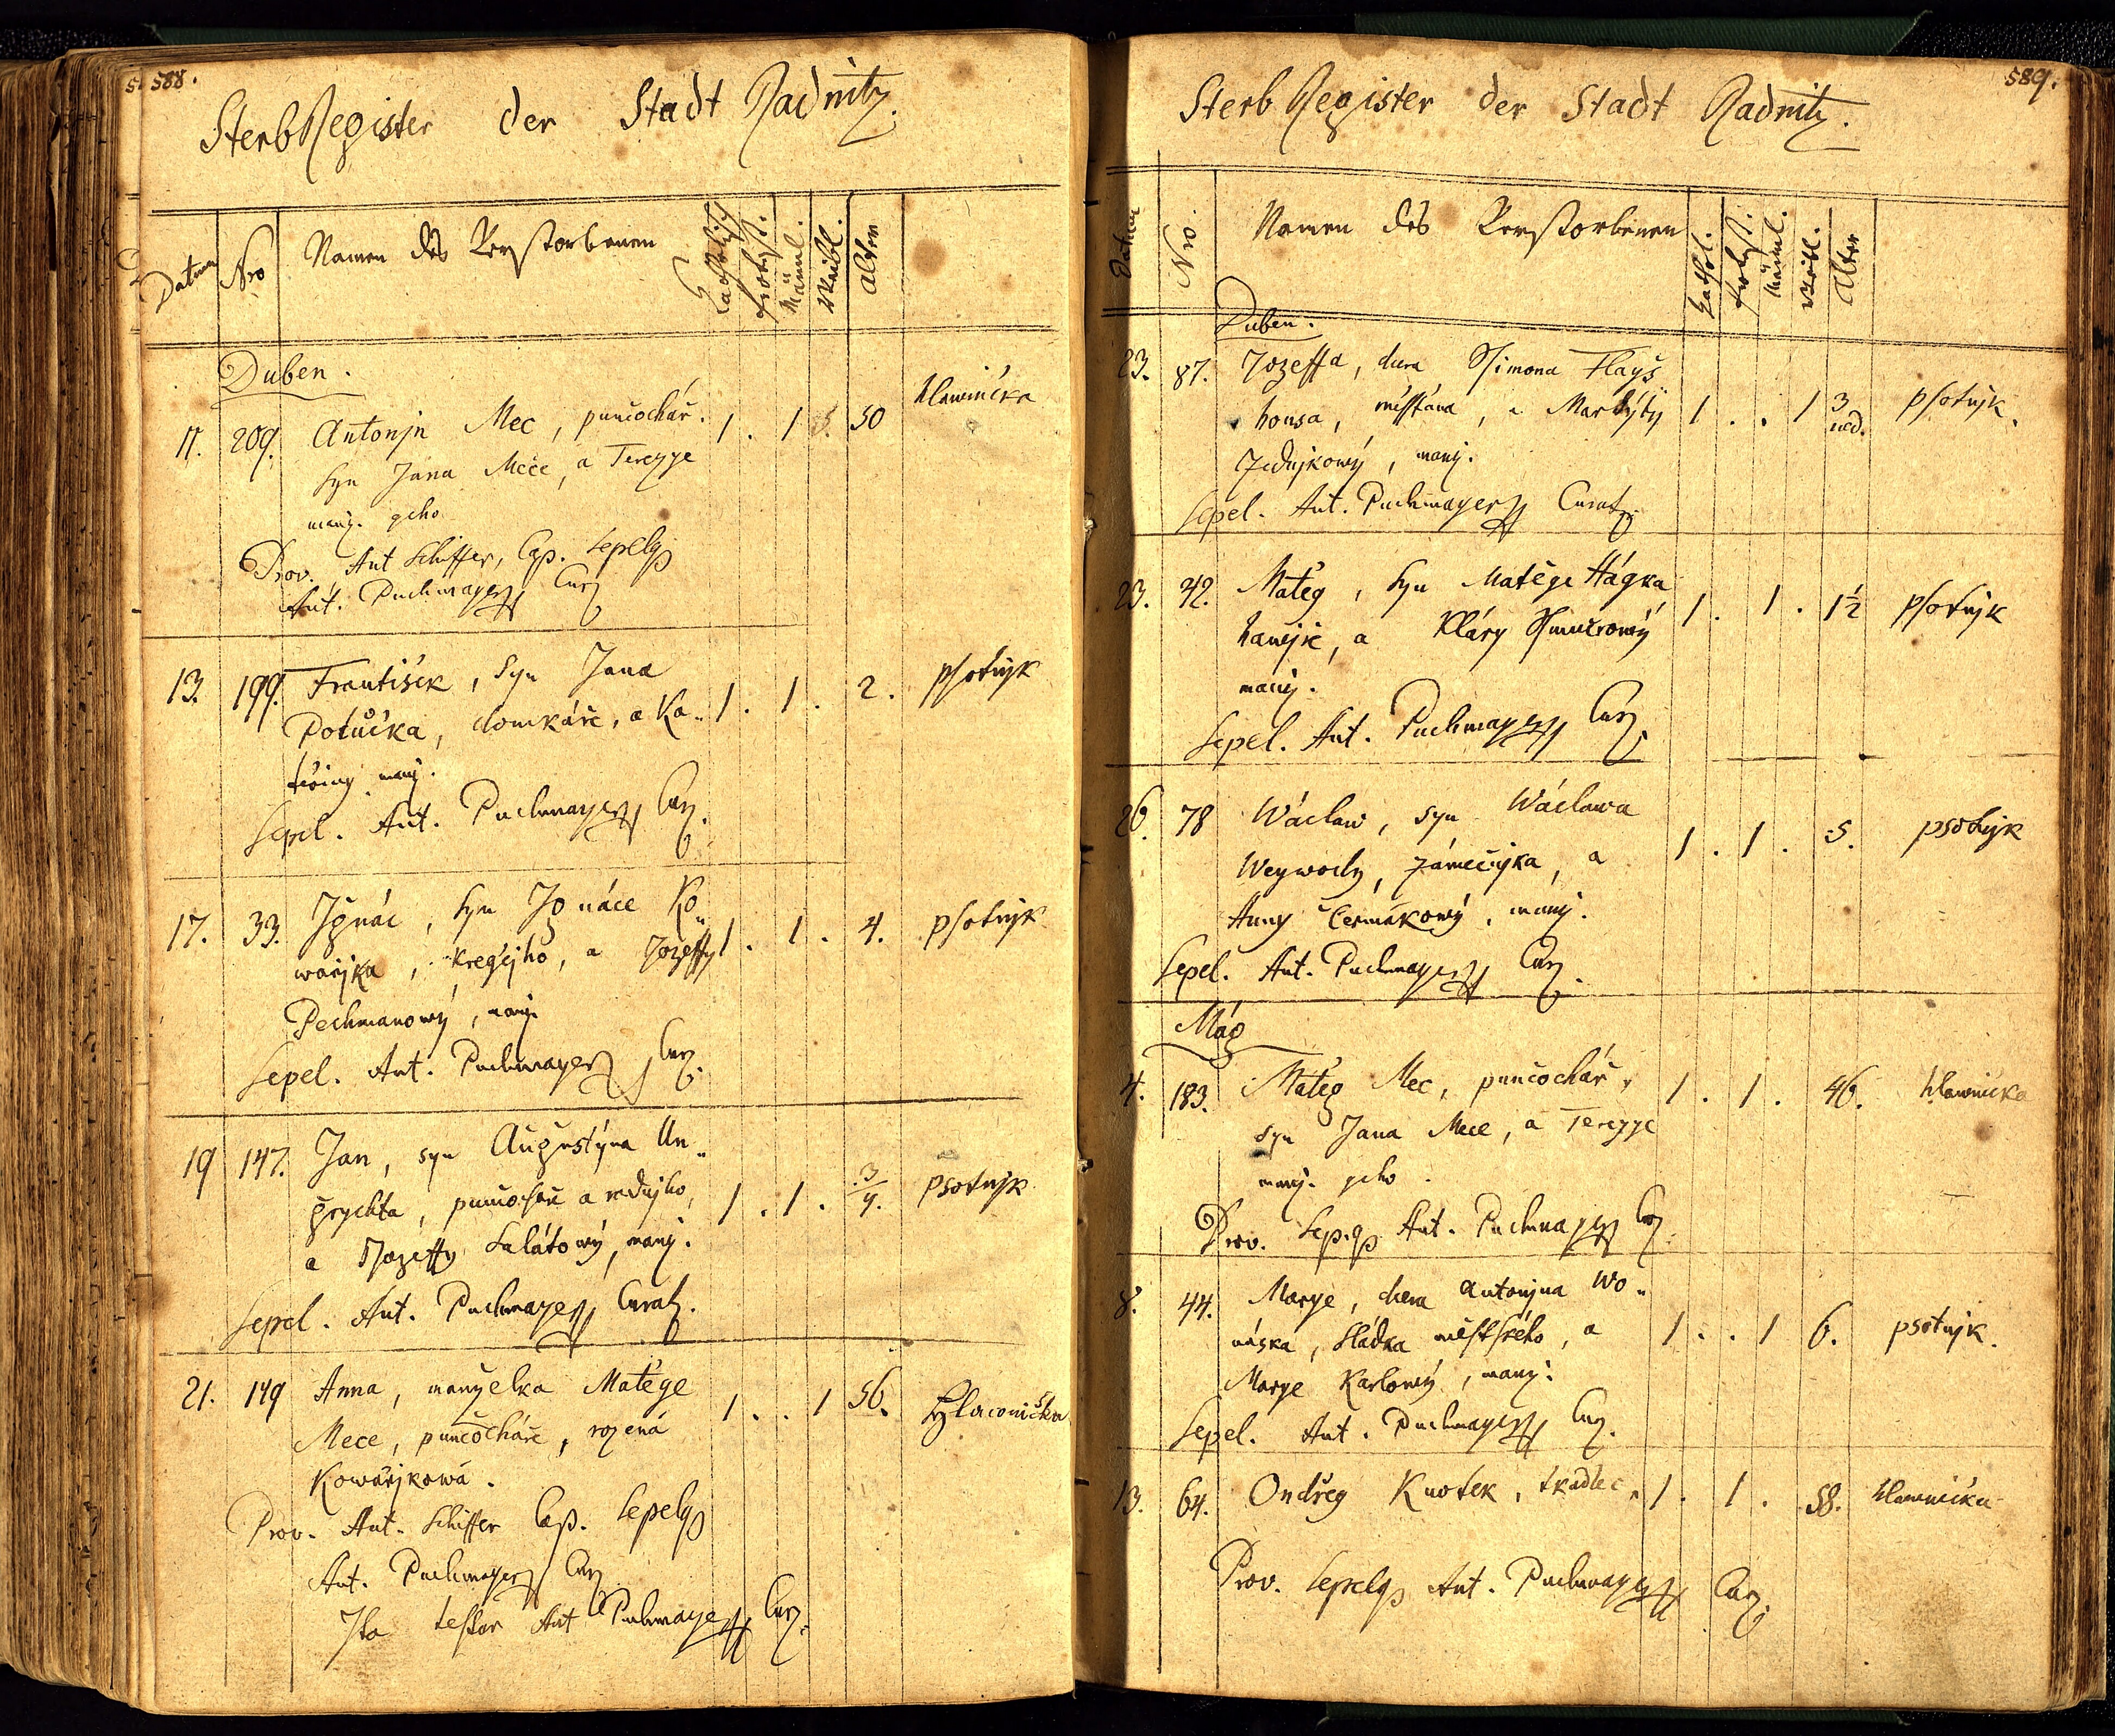 588.
SterbRegister der Stadt Radnitz.
Datum Nro Namen des Verstorbenen Katholisch Protest. Mänml. Weibl. Alter
Duben.
11. 209. Antonjn Mec, punčochář. 1. 1 50 hlawnička
syn Jána Mece, a Terezye
manž. geho
Prov. Ant Schiffer, Cap. Sepel
Ant. Puchmayer Cur
13. 199. František, syn Jana 1. 1. 2. psotnjk
Potůčka, domkáře, a Ka„
teřiny manž.
Sepel. Ant. Puchmayer Cur.
17. 33. Jgnác, syn Jgnáce Ko„ 1. 1. 4. psotnjk
wařjka, kregčjho, a Jozeffy
Pechmanowý, manž.
Sepel. Ant. Puchmayer Cur.
19 147. Jan, syn Augustýna Un„ 1. 1. 3/4. psotnjk
grychta, punčocháře a radnjho,
a Jozeffy Salátowý, manž.
Sepel. Ant. Puchmayer Curat.
21. 149 Anna, manželka Matěge 1. . 1 56. hlawnička
Mece, punčocháře, rozená
Kowářjkowá.
Prov. Ant. Schiffer Cap. Sepel
Ant. Puchmayer Cur
Ita testor Ant Puchmayer Cur.
589.
SterbRegister der Stadt Radnitz.
Datum Nro. Namen des Verstorbenen Kathol. Protest. Mänml. Weibl. Alter
Duben.
23. 87. Jozeffa, dcera Ssimona Flayš 1 . . 1 3 ned. psotnjk.
honsa, měsstěna, a Markýty
Zednjkowý, manž.
Sepel. Ant. Puchmayer Curat.
23. 42. Matěg, syn Matěge Hágka 1. 1. 1½ psotnjk
hawjře, a Kláry
manž.
Sepel. Ant. Puchmayer Cur.
26. 78 Wáclaw, syn Wáclawa 1. 1. 5. psotnjk
Weywody, zámečnjka, a
Anny Čermákowý, manž.
Sepel. Ant. Puchmayer Cur.
Mág
4. 183. Matěg Mec, punčochář, 1. 1. 46. hlawnička
syn Jana Mece, a Terezye
manž. geho.
Prov. Sep. Ant. Puchmayer Cur.
8. 44. Marye, dcera Antonjna Wo„ 1. . 1 6. psotnjk.
náska, sládka městského, a
Marye Karlowý, manž.
Sepel. Ant. Puchmayer Cur.
13. 64. Ondřeg Knotek, tkadlec, 1. 1. 58. hlawnička
Prov. Sepel Ant. Puchmayer Cur.